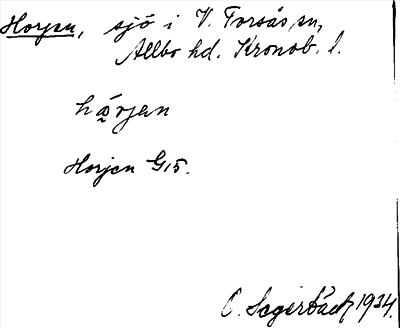 Horjen, sjö i V. Torsås sn,
Allbo hd. Kronob. l.
hårjan
Horjen G15.
O. Sagerbäck 1934.